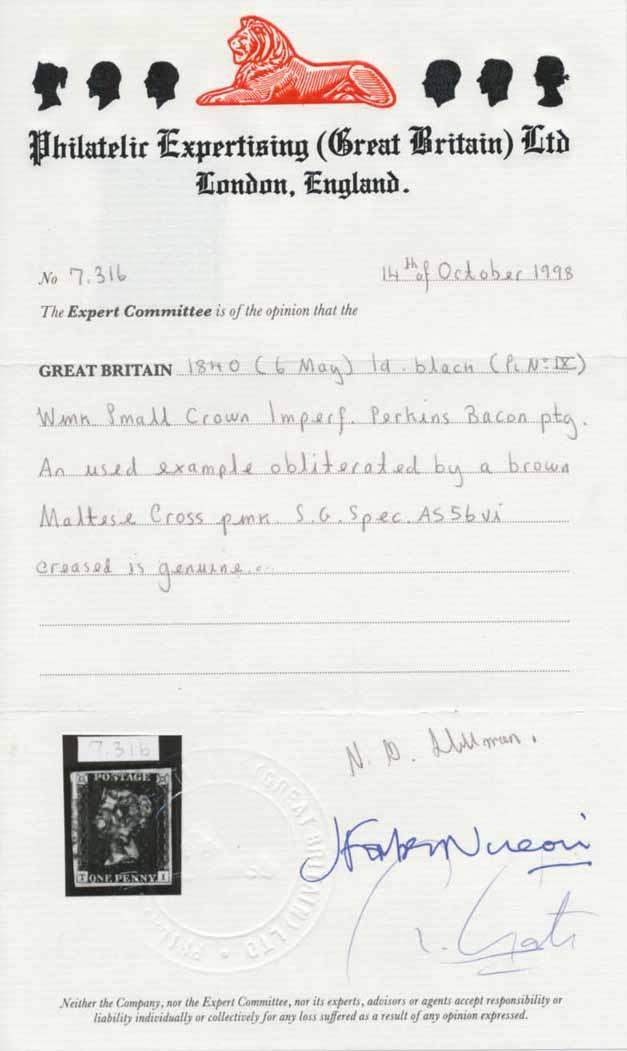 Philatelic Expertising (Great Britain) Ltd
London, England.
No 7.316
14th of October 1998
The Expert Committee is of the opinion that the
GREAT BRITAIN 1840 (6 May) 1d. black (Pl. No. IX)
Wmk Small Crown Imperf. Perkins Bacon ptg.
An used example obliterated by a brown
Maltese Cross pmk S.G. Spec. AS56vi
creased is genuine...
7.316
POSTAGE
T ONE PENNY I
GREAT BRITAIN) LTD
N. D.
Neither the Company, nor the Expert Committee, nor its experts, advisors or agents accept responsibility or
liability individually or collectively for any loss suffered as a result of any opinion expressed.